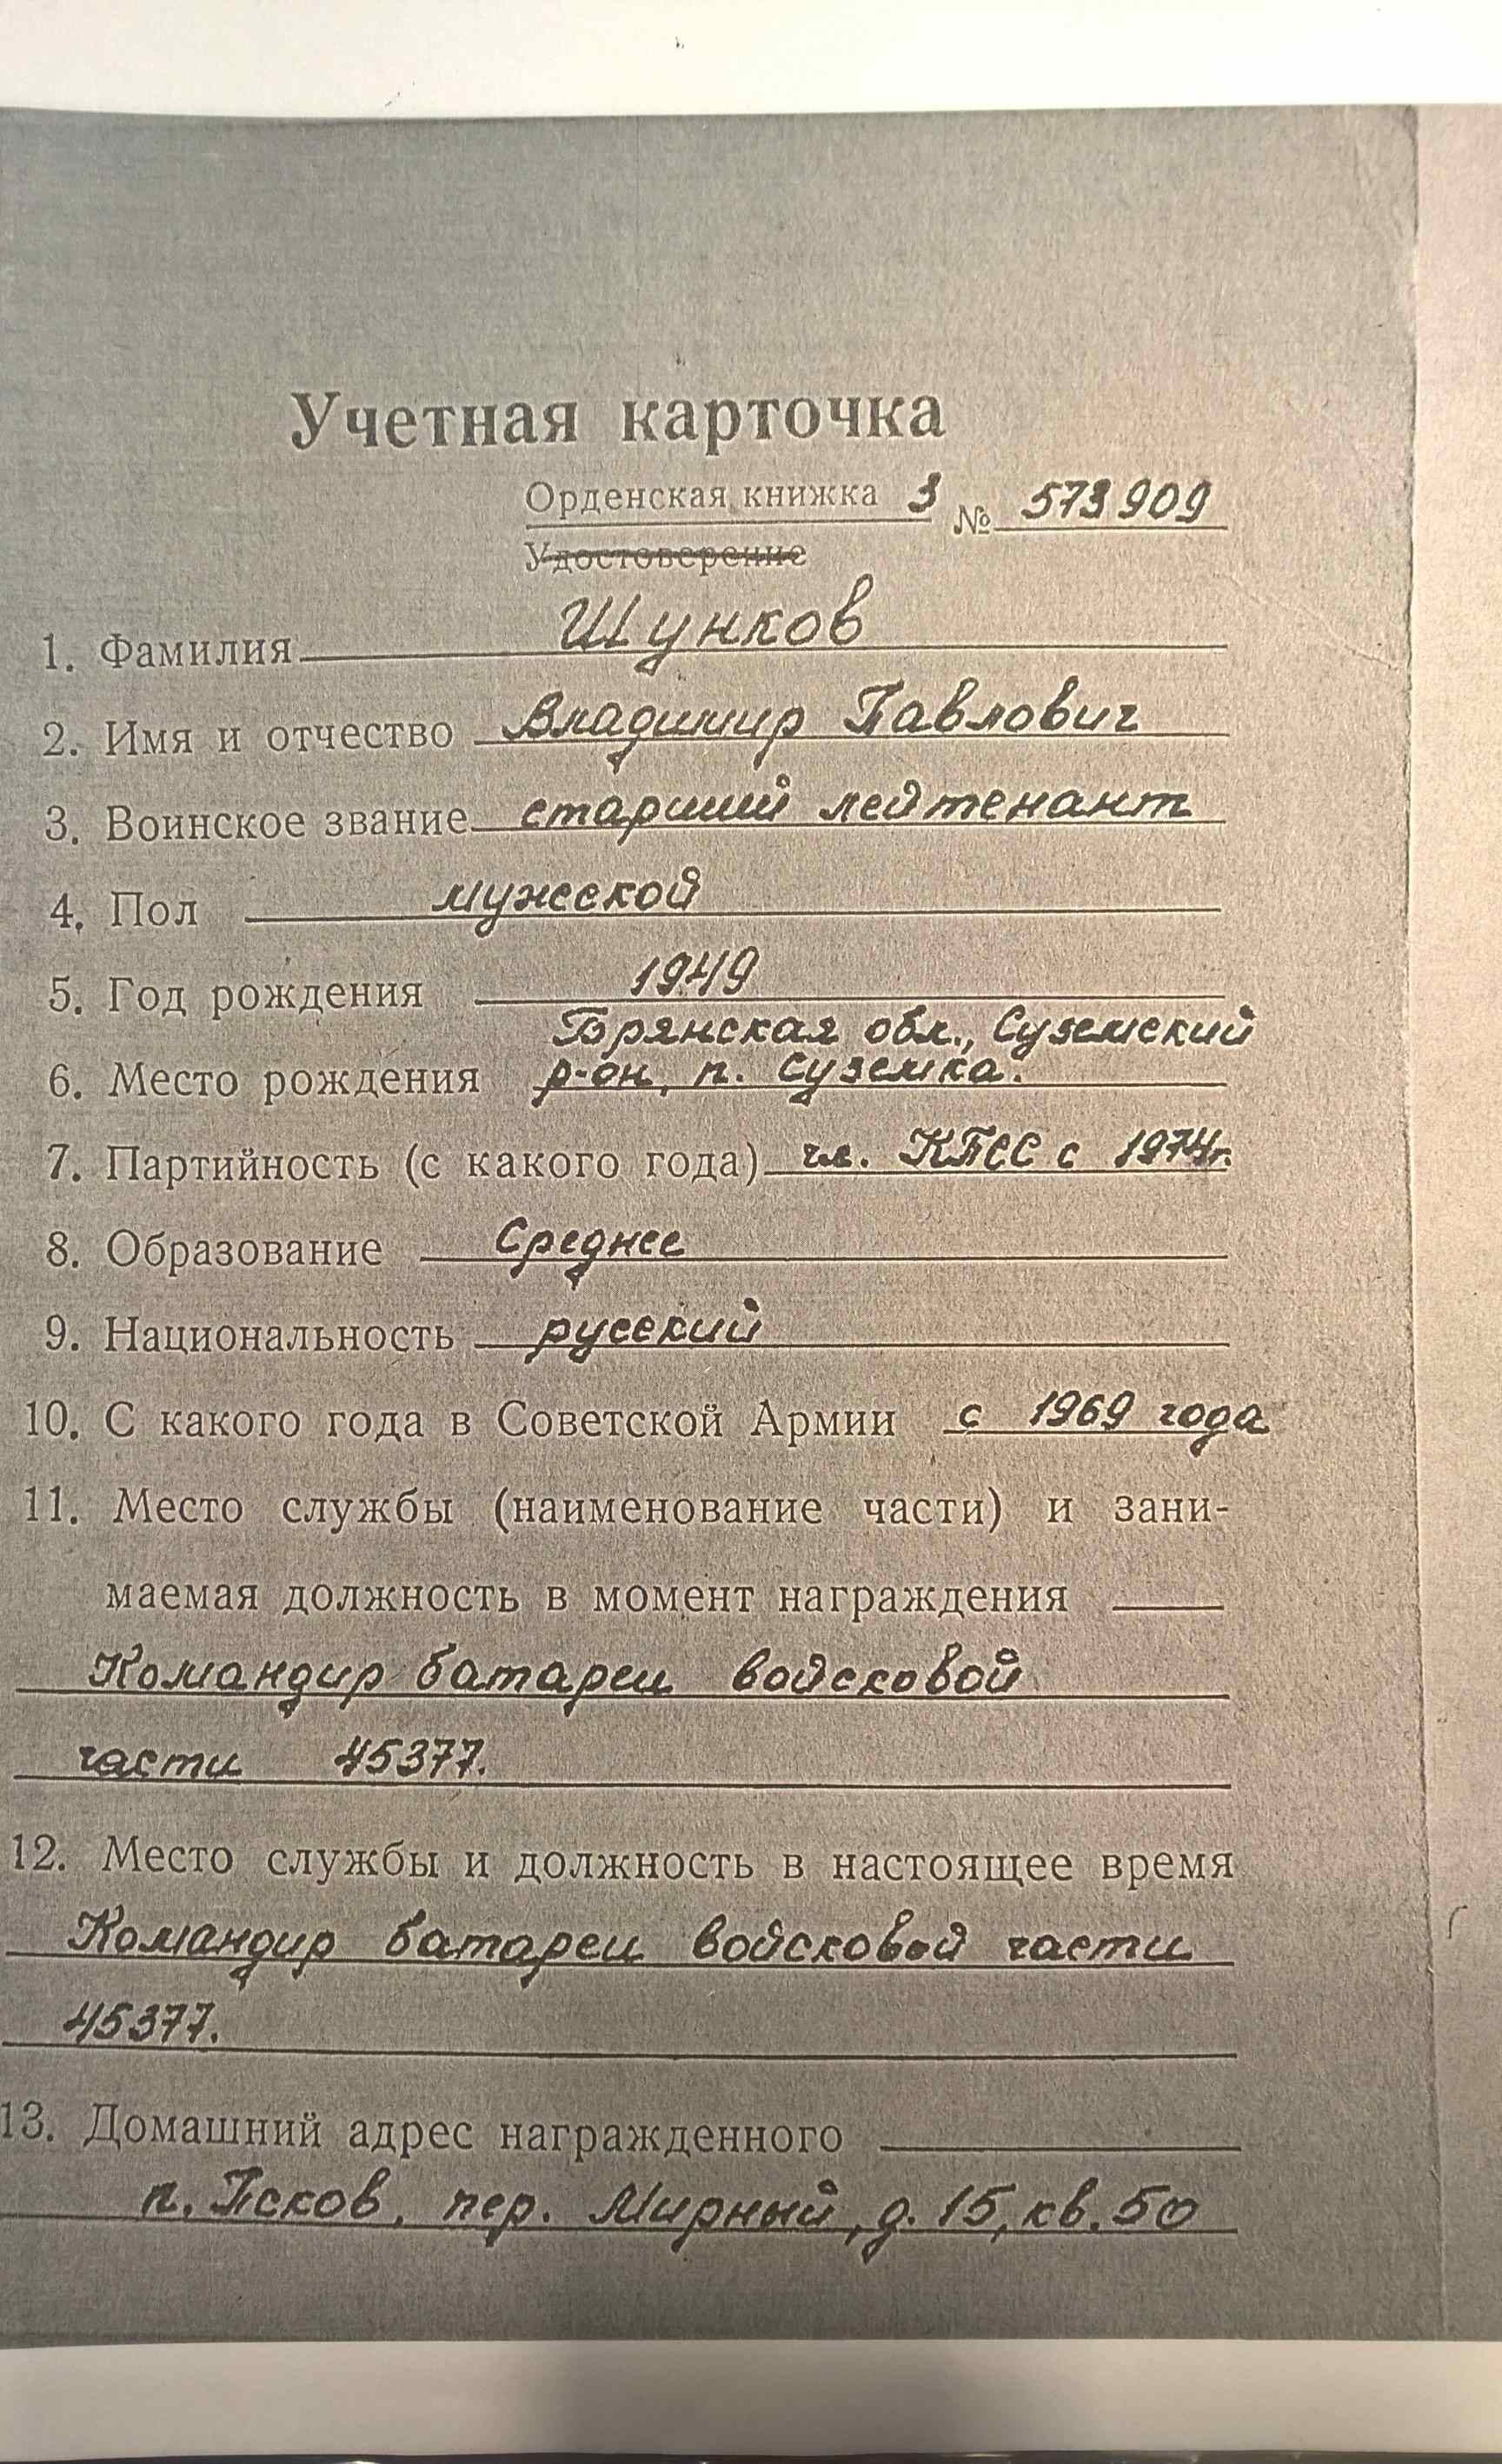 Учетная карточка
Орденская книжка З № 573909
Удостоверение
1. Фамилия Шунков
2. Имя и отчество Владимир Павлович
3. Воинское звание старший лейтенант
4. Пол мужской
5. Год рождения 1949
Брянская обл., Суземский
6. Место рождения р-он, п. Суземка.
7. Партийность (с какого года) чл. КПСС с 1974г.
8. Образование Среднее
9. Национальность русский
10. С какого года в Советской Армии с 1969 года
11. Место службы (наименование части) и зани-
маемая должность в момент награждения
Командир батареи войсковой
части 45377.
12. Место службы и должность в настоящее время
Командир батареи войсковой части
45377.
13. Домашний адрес награжденного
п. Псков, пер. Мирный, д. 15, кв. 50